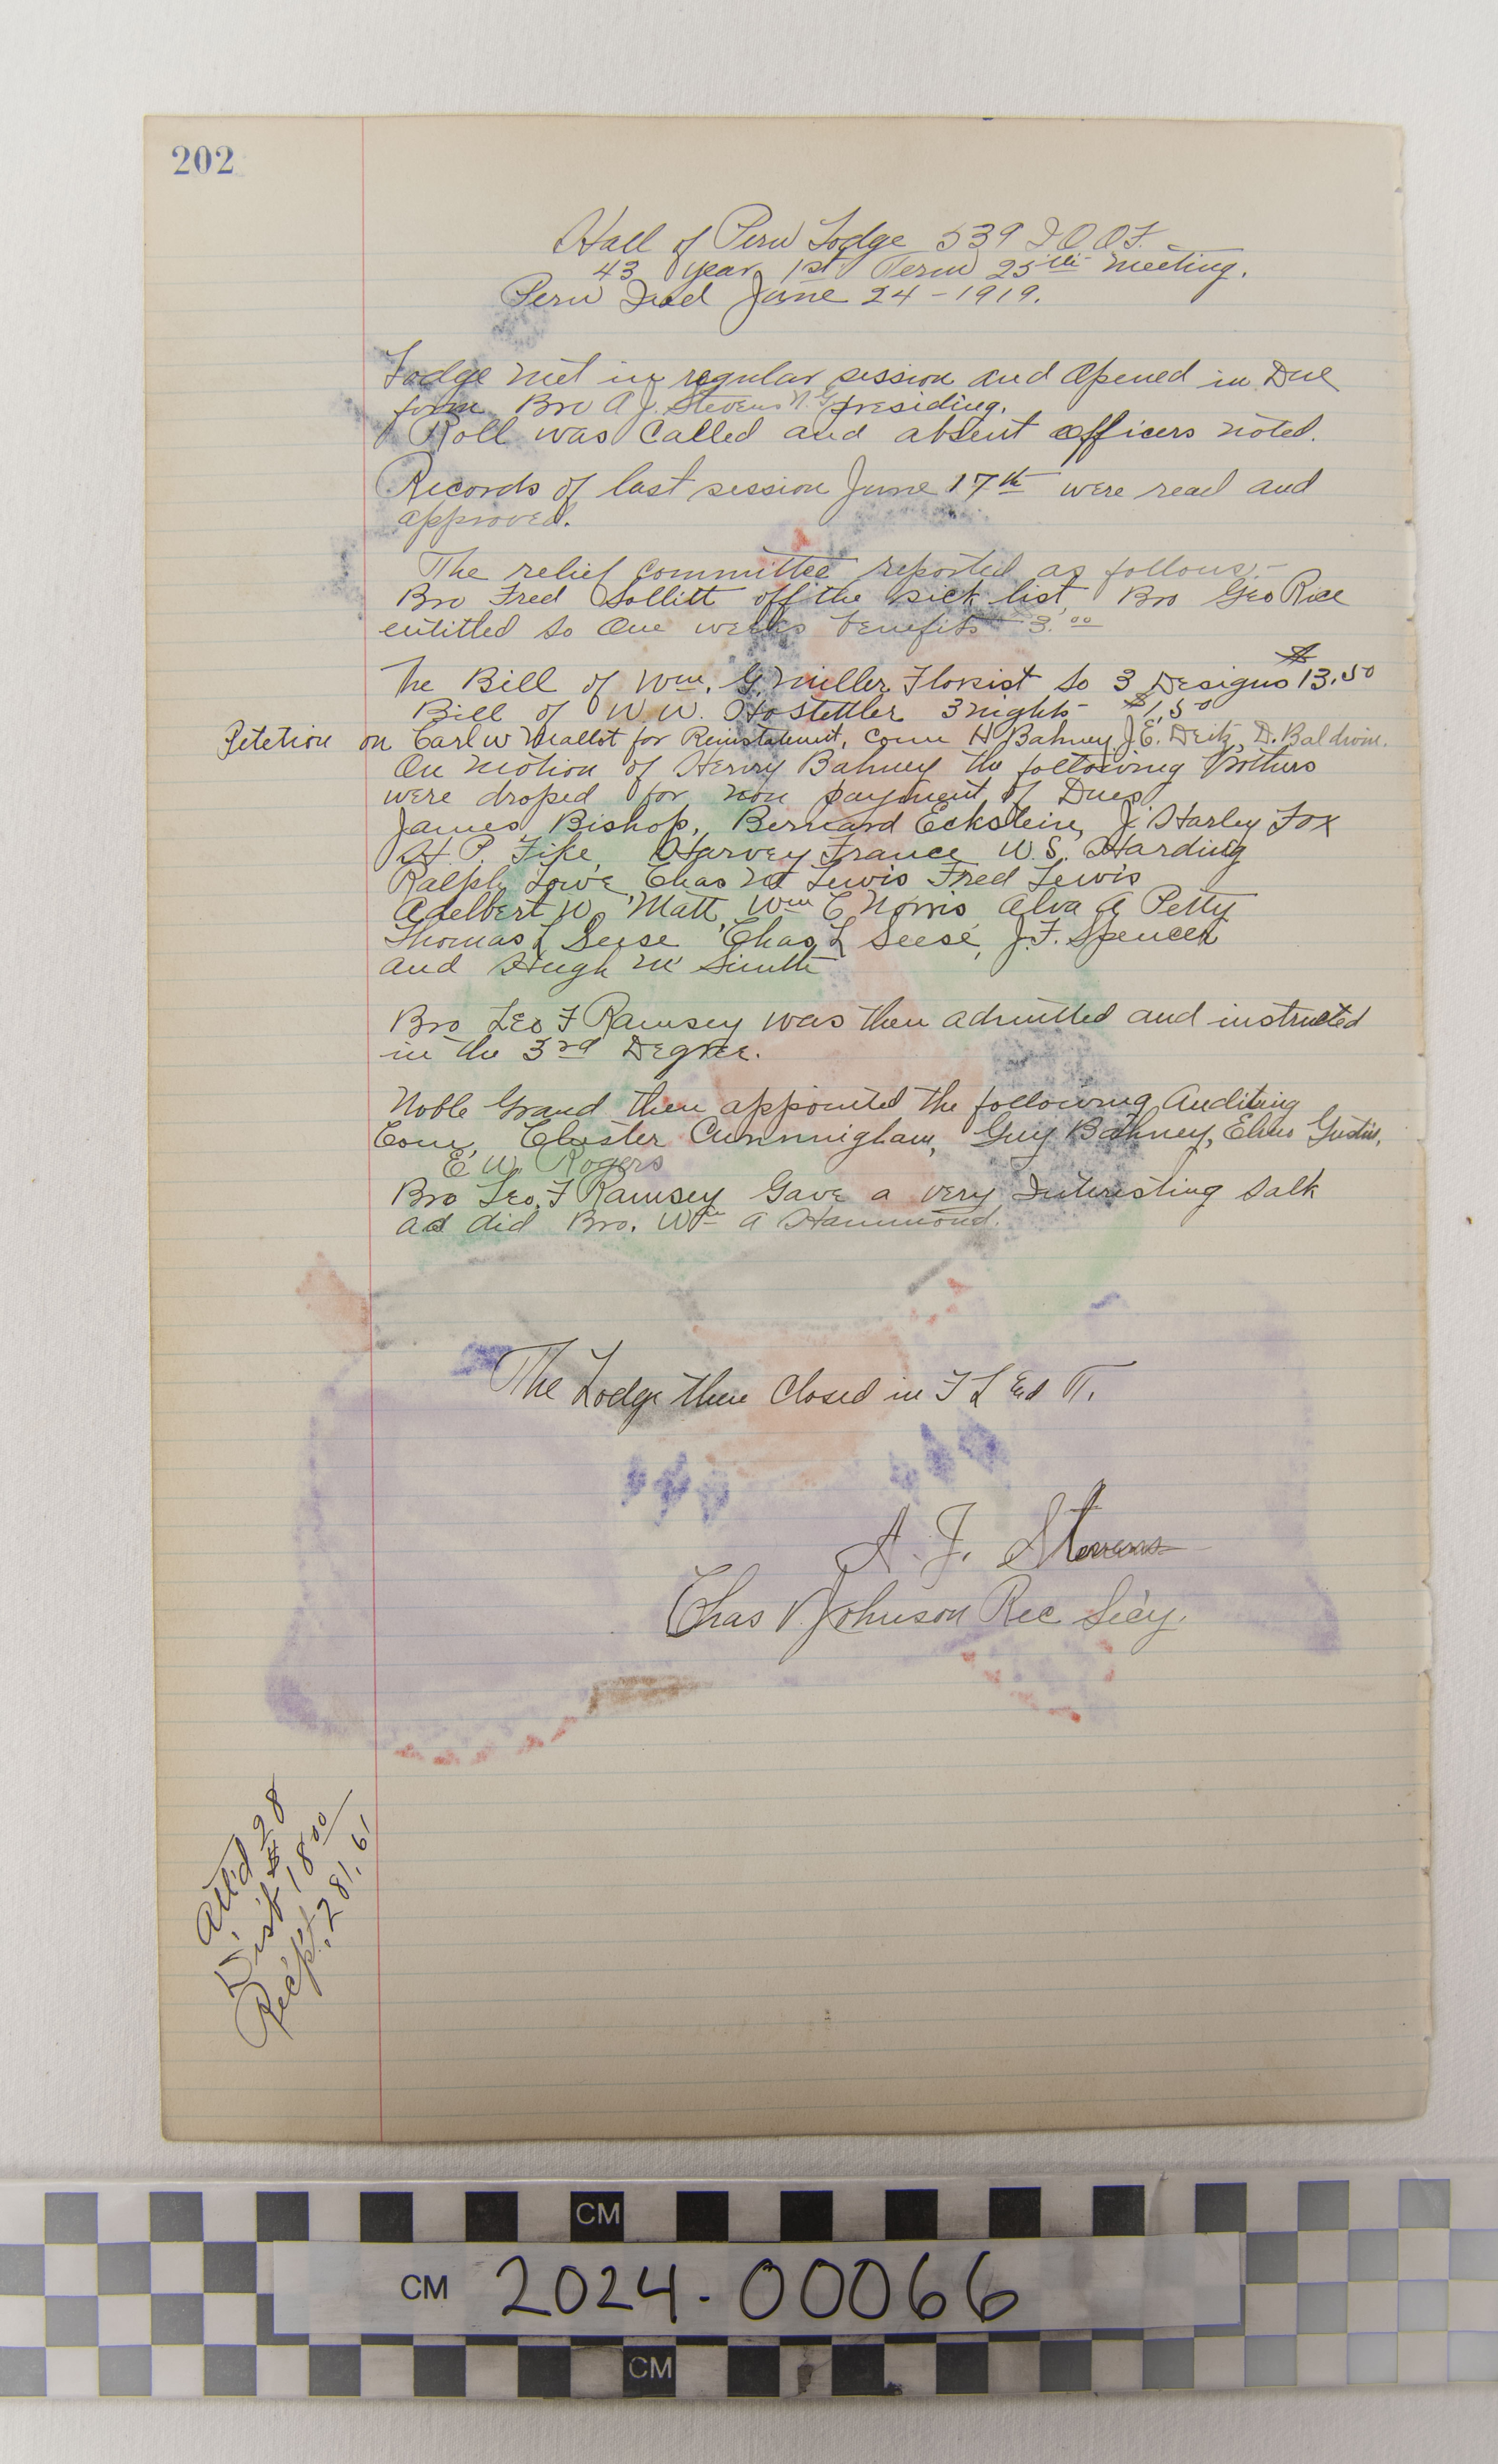 202
Hall of Peru Lodge 539 I O O F.
43 year 1st Term 25th meeting.
Peru Ind June 24 - 1919.
Lodge met in regular session and opened in Due
form Bro A J. Stevens N. G presiding.
Roll was Called and absent officers noted.
Records of last session June 17th were read and
approved.
The relief committee reported as follows:-
Bro Fred Sollitt off the sick list, Bro Geo Rice
entitled to One weeks benefits 3.00
The Bill of Wm. G. Miller Florist to 3 Designs $13.50
Bill of W W. Hostettler 3 nights - $1.50
Petetion on Carl W Mallot for Reinstatement, Com H Bahney, J. E. Deitz, D. Baldwin.
On motion of Henry Bahney the following brothers
were droped for non payment of Dues.
James Bishop, Bernard Eckstein, J. Harley Fox
H. P. Fike, Harvey France W. S. Harding
Ralph Lowe, Chas M Lewis Fred Lewis
Adelbert W. Matt, Wm C Norris Alva A Petty
Thomas L Seese Chas L Seese, J. F. Spencer
and Hugh M Smith
Bro Leo F Ramsey was then admitted and instructed
in the 3rd Degree.
Noble Grand then appointed the following Auditing
Com, Cluster Cunningham, Guy Bahney, Elmo Gustin,
E W. Rogers
Bro Leo. F Ramsey Gave a very Interesting talk
as did Bro. Wm A Hammond.
The Lodge then Closed in F L and T.
A. J. Stevens
Chas V. Johnson Rec Secy.
Att'd 28
Disb $18.00
Rec'pt. 281.61
CM
CM 2024.00066
CM